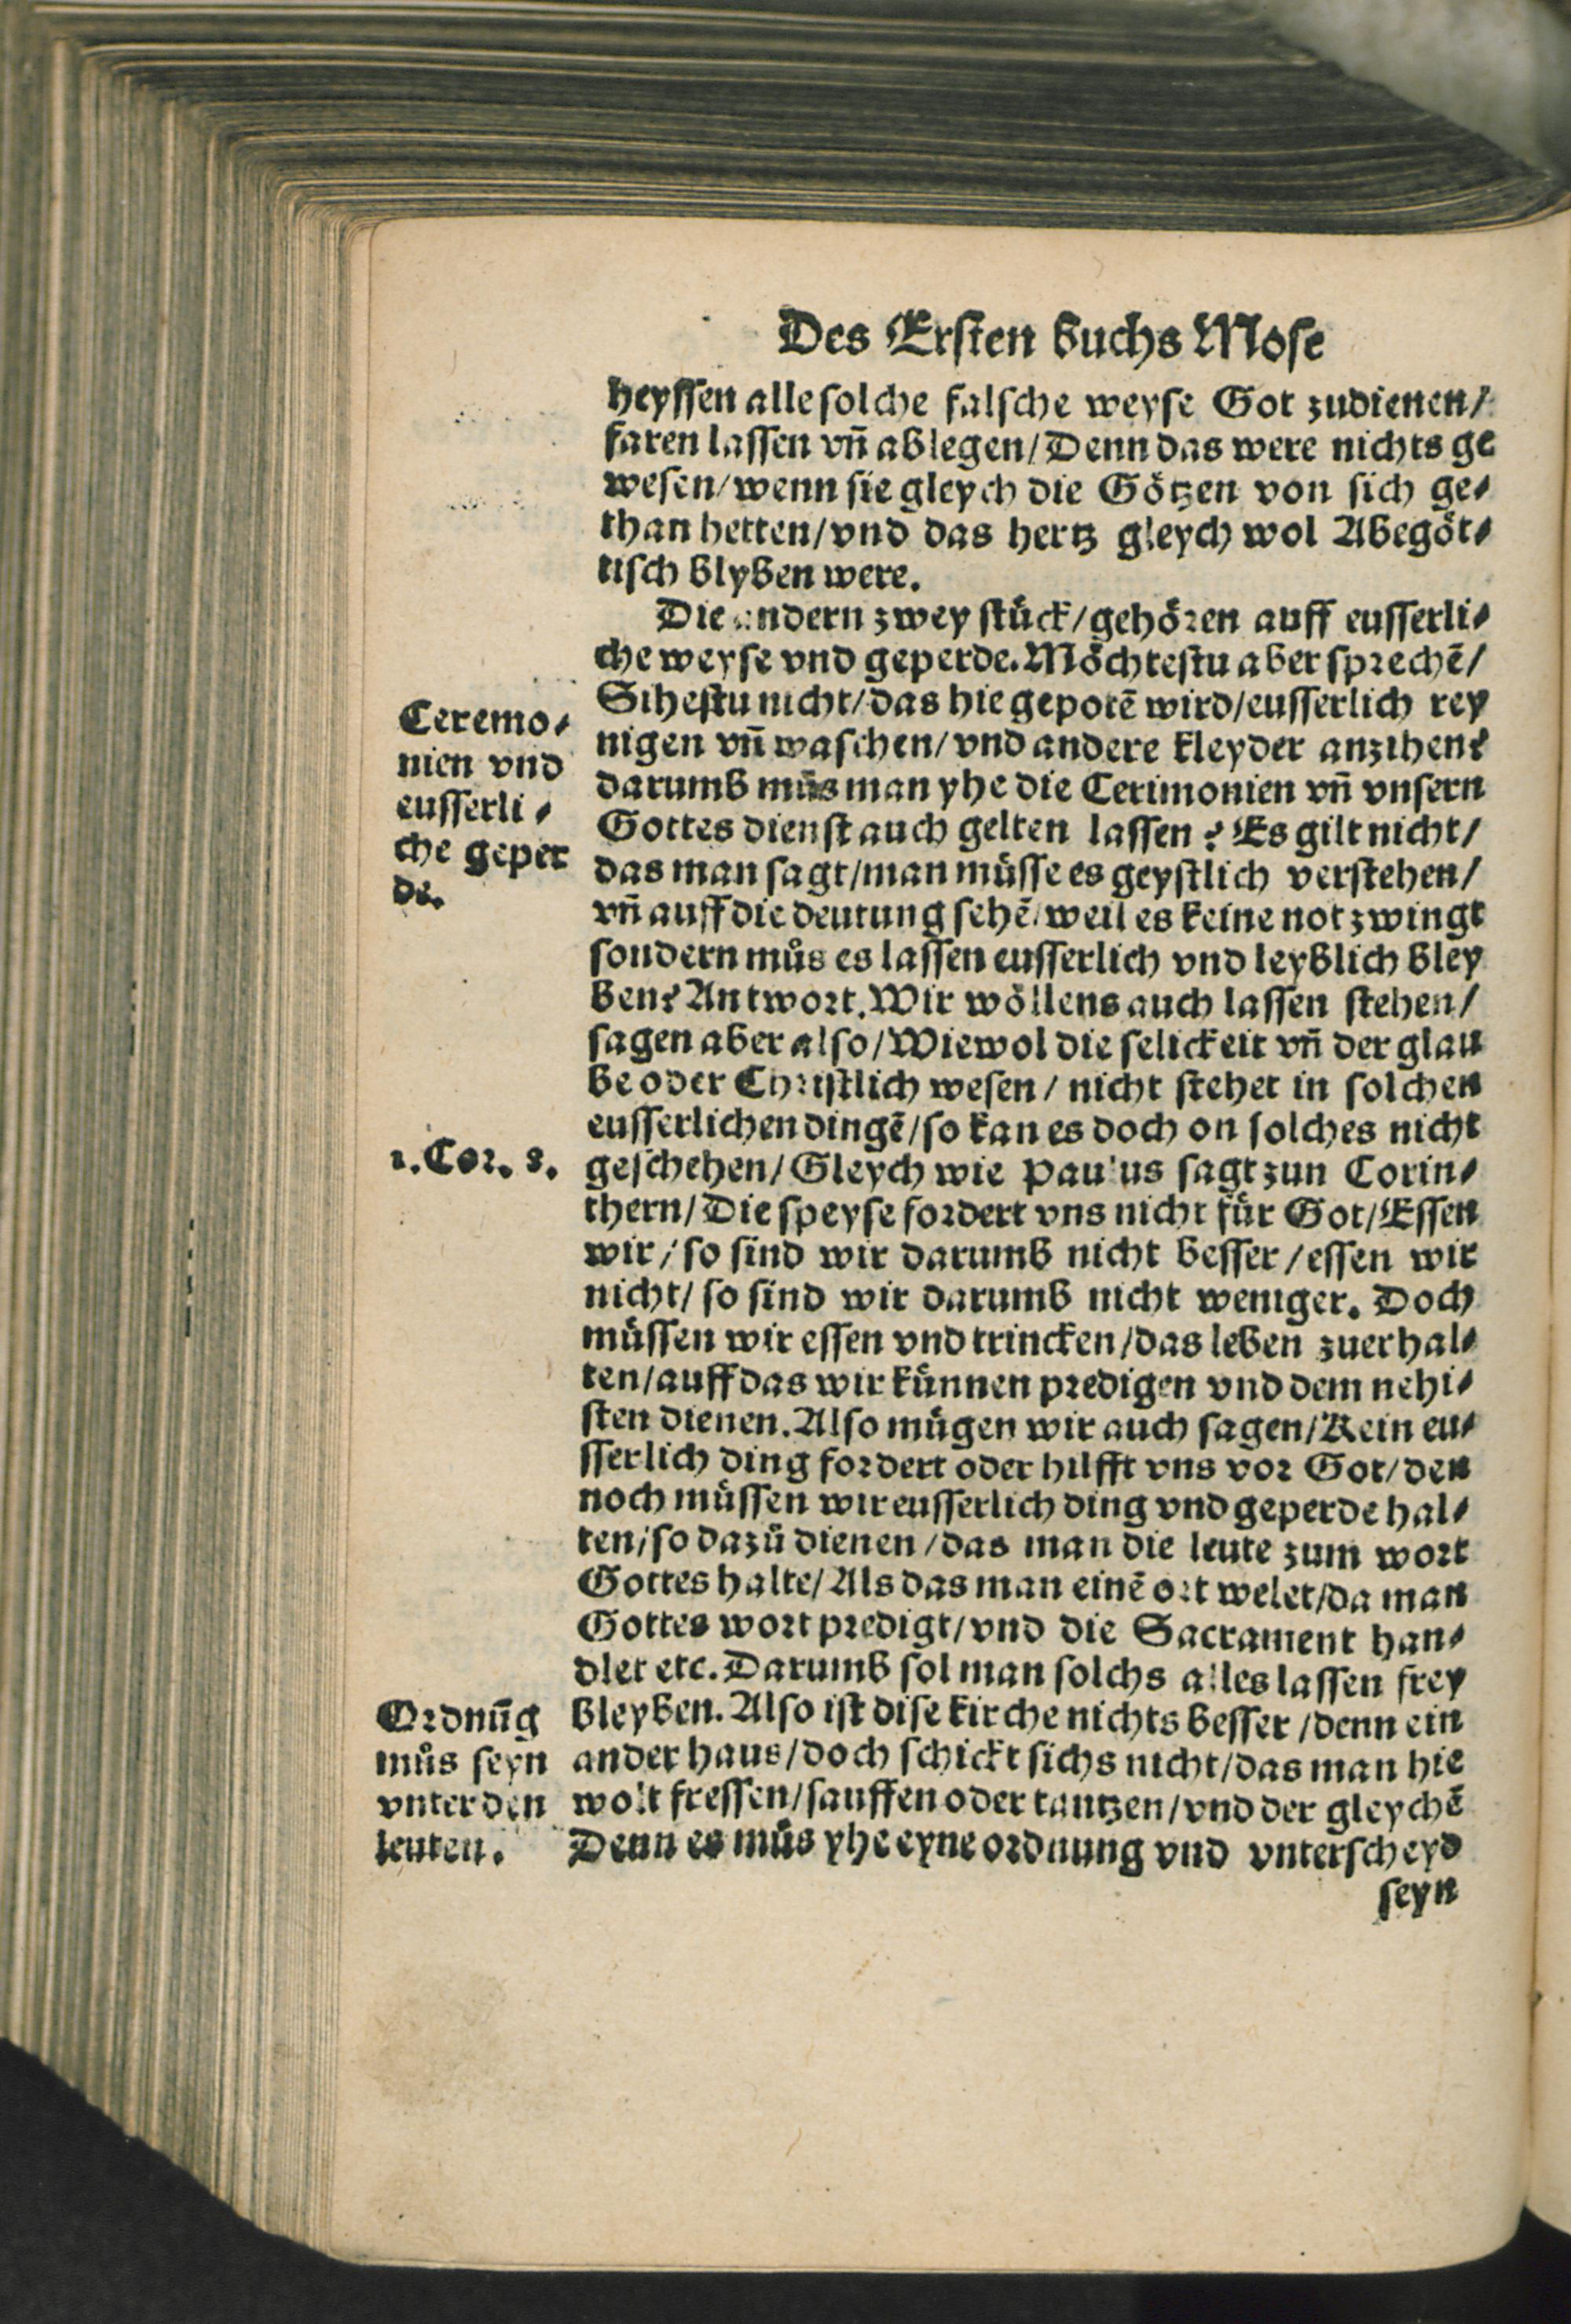 Des Ersten buchs Mose
heyssen alle solche falsche weyse Got zudienen/
faren lassen vñ ablegen/Denn das were nichts ge
wesen/wenn sie gleych die Götzen von sich ge⸗
than hetten/vnd das hertz gleych wol Abegöt⸗
tisch blyben were.
Die andern zwey stück/gehören auff eusserli⸗
che weyse vnd geperde. Möchtestu aber sprechē/
Sihestu nicht/das hie gepotē wird/eusserlich rey
nigen vñ waschen/vnd andere kleyder anzihen?
darumb můs man yhe die Cerimonien vñ vnsern
Gottes dienst auch gelten lassen? Es gilt nicht/
das man sagt/man müsse es geystlich verstehen/
vñ auff die deutung sehē/weil es keine not zwingt
sondern můs es lassen eusserlich vnd leyblich bley
ben? Antwort. Wir wöllens auch lassen stehen/
sagen aber also/Wiewol die selickeit vñ der glau
be oder Christlich wesen/nicht stehet in solchen
eusserlichen dingē/so kan es doch on solches nicht
geschehen/Gleych wie Paulus sagt zun Corin⸗
thern/Die speyse fordert vns nicht für Got/Essen
wir/so sind wir darumb nicht besser/essen wir
nicht/so sind wir darumb nicht weniger. Doch
müssen wir essen vnd trincken/das leben zuerhal⸗
ten/auff das wir künnen predigen vnd dem nehi⸗
sten dienen. Also mügen wir auch sagen/Kein eu⸗
sserlich ding fordert oder hilfft vns vor Got/den
noch müssen wir eusserlich ding vnd geperde hal⸗
ten/so dazů dienen/das man die leute zum wort
Gottes halte/Als das man einē ort welet/da man
Gottes wort predigt/vnd die Sacrament han⸗
dlet etc. Darumb sol man solchs alles lassen frey
bleyben. Also ist dise kirche nichts besser/denn ein
ander haus/doch schickt sichs nicht/das man hie
wolt fressen/sauffen oder tantzen/vnd der gleychē
Denn es můs yhe eyne ordnung vnd vnterscheyd
seyn
Ceremo⸗
nien vnd
eusserli⸗
che geper
de.
1. Cor. 8.
Ordnūg
můs seyn
vnter den
leuten.